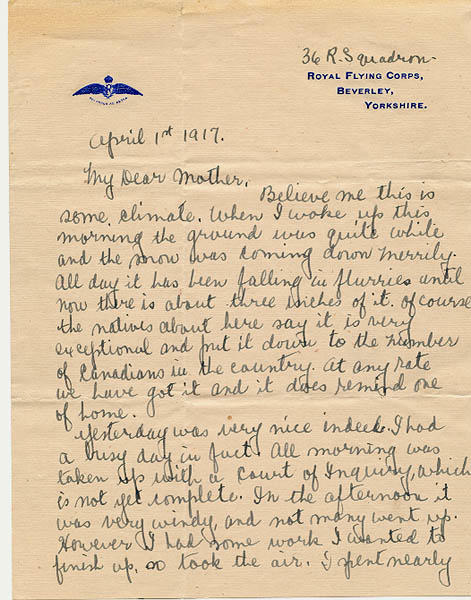 36 R. Squadron.
ROYAL FLYING CORPS,
BEVERLEY,
YORKSHIRE.
April 1st 1917.
My Dear Mother,
Believe me this is
some climate. When I woke up this
morning the ground was quite while
and the snow was coming down merrily.
All day it has been falling in flurries until
now there is about three inches of it. Of course
the natives about here say it is very
exceptional and put it down to the number
of Canadians in the country. At any rate
we have got it and it does remind one
of home.
Yesterday was very nice indeed. I had
a busy day in fact. All morning was
taken up with a Court of Inquiry, which
is not yet complete. In the afternoon it
was very windy, and not many went up.
However I had some work I wanted to
finish up, so took the air. I spent nearly